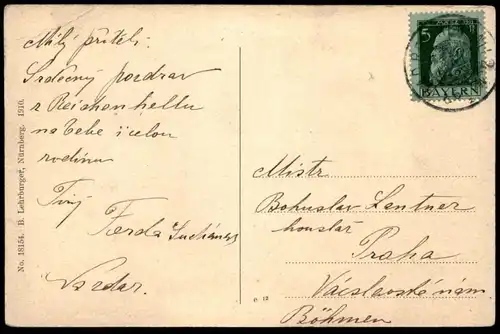 Milý příteli.
Srdečný pozdrav
z Reichenhellu
na Tebe i celou
rodinu
Tvůj
Ferda
Mistr
Bohuslav Lentner
houslař
Praha
Václavské nám
Böhmen
5
BAYERN
No. 18154. B. Lehrburger, Nürnberg. 1910.